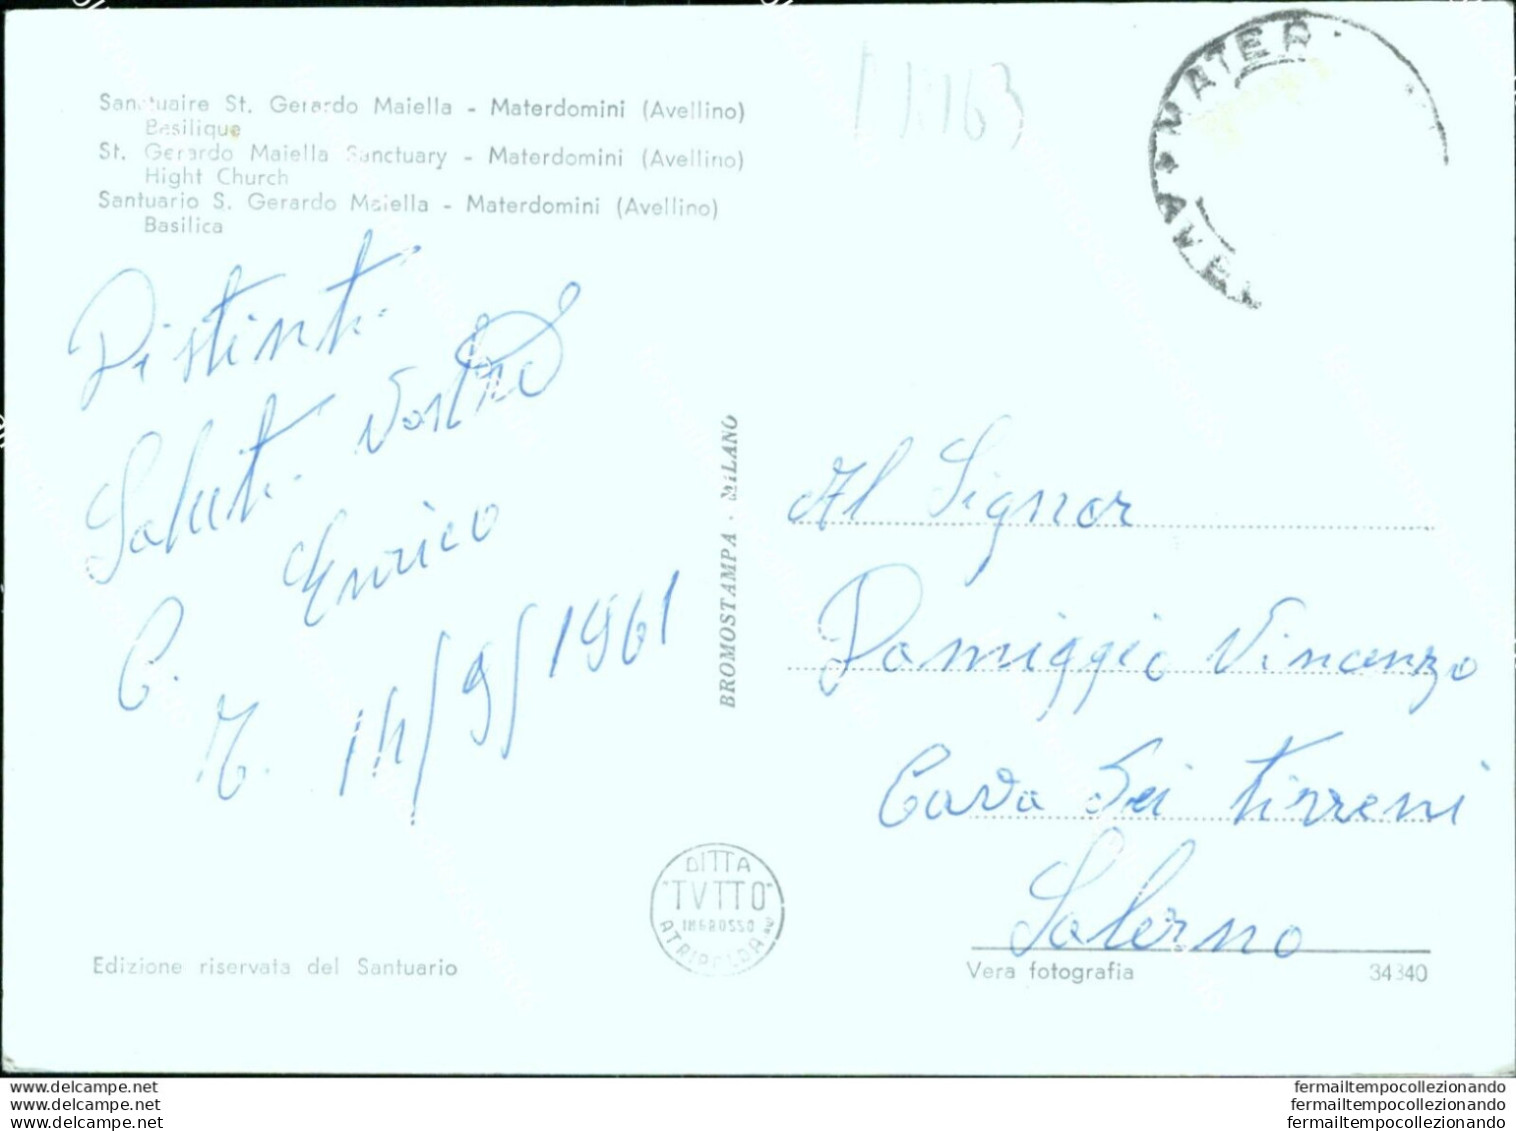 Sanctuaire St. Gerardo Maiella - Materdomini (Avellino)
Basilique
St. Gerardo Maiella Sanctuary - Materdomini (Avellino)
Hight Church
Santuario S. Gerardo Maiella - Materdomini (Avellino)
Basilica
Distinti
Saluti Vostro
Enrico
C.
M. 14/9/1961
BROMOSTAMPA · MILANO
Al Signor
Damiggio Vincenzo
Cava Dei Tirreni
Salerno
DITTA
"TVTTO"
INGROSSO
ATRIPALDA
Edizione riservata del Santuario
Vera fotografia 34340
www.delcampe.net
www.delcampe.net
www.delcampe.net
fermailtempocollezionando
fermailtempocollezionando
fermailtempocollezionando